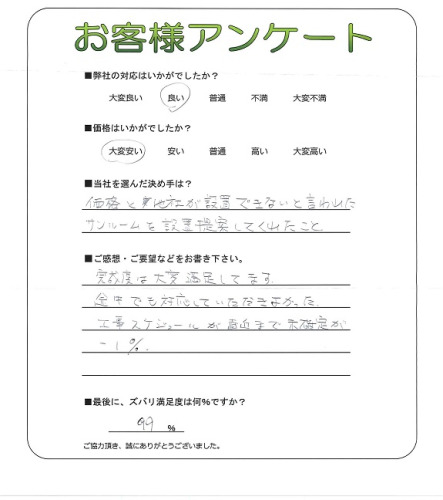 お客様アンケート
■弊社の対応はいかがでしたか？
大変良い 良い 普通 不満 大変不満
■価格はいかがでしたか？
大変安い 安い 普通 高い 大変高い
■当社を選んだ決め手は？
価格と 他社が設置できないと言われた
サンルームを設置提案してくれたこと
■ご感想・ご要望などをお書き下さい。
完成度は大変満足してます。
途中でも対応していただきよかった。
工事スケジュールが直近まで未確定が
-1%.
■最後に、ズバリ満足度は何%ですか？
99 %
ご協力頂き、誠にありがとうございました。